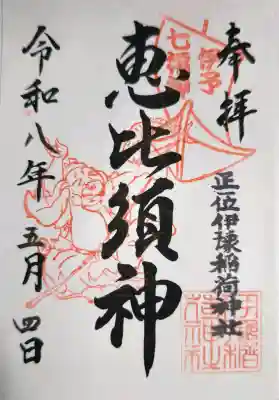 奉拝
正一位伊豫稲荷神社
伊予
七福神
恵比須神
令和八年五月四日